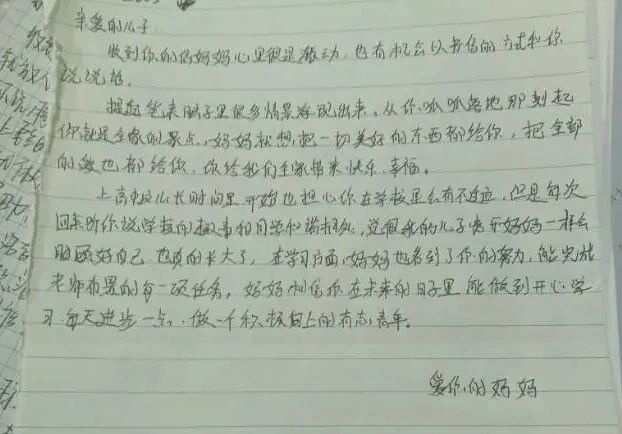 亲爱的儿子
收到你的信妈妈心里很是激动,也有机会以书信的方式和你
说说话。
提起笔来脑子里很多情景浮现出来。从你呱呱落地那刻起
你就是全家的焦点,妈妈就想把一切美好的东西都给你,把全部
的爱也都给你,你给我们全家带来快乐、幸福。
上高中这么长时间里开始也担心你在学校里会有不适应,但是每次
回来听你说学校的趣事和同学和谐相处,觉得我的儿子离开妈妈一样会
照顾好自己 也真的长大了,在学习方面,妈妈也看到了你的努力,能完成
老师布置的每一项任务,妈妈相信你在未来的日子里 能做到开心学
习.每天进步一点,做一个积极向上的有志青年。
爱你的妈妈